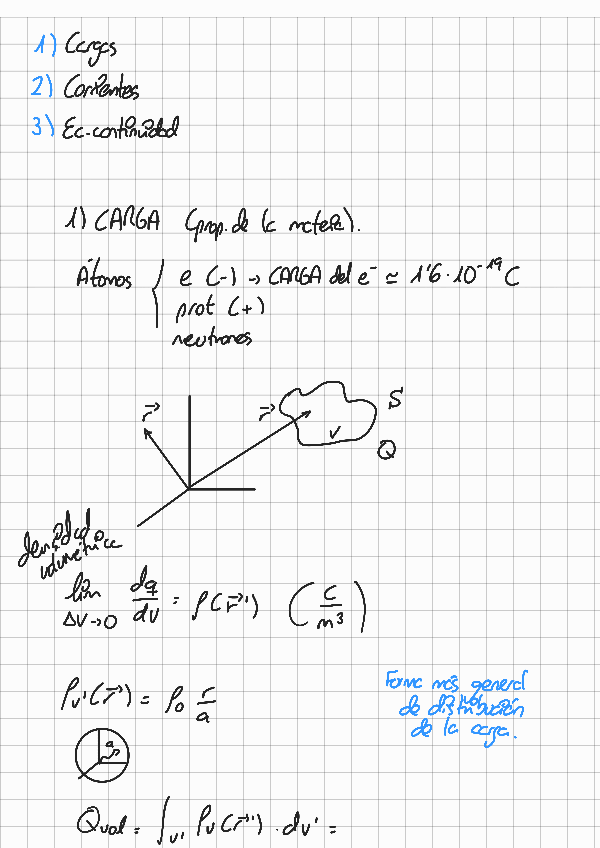 1) Cargas
2) Corrientes
3) Ec. continuidad
1) CARGA (prop. de la materia).
Átomos { e (-) → CARGA del e⁻ ≃ 1'6 · 10⁻¹⁹ C
prot (+)
neutrones
r⃗ r⃗' S
V
Q
densidad
volumétrica
lim ΔV→0 dq/dv = ρ(r⃗') (C/m³)
ρv'(r⃗') = ρ₀ r/a
Forma más general
de distribución
de la carga.
a
Qvol = ∫v' ρv(r⃗') · dv' =